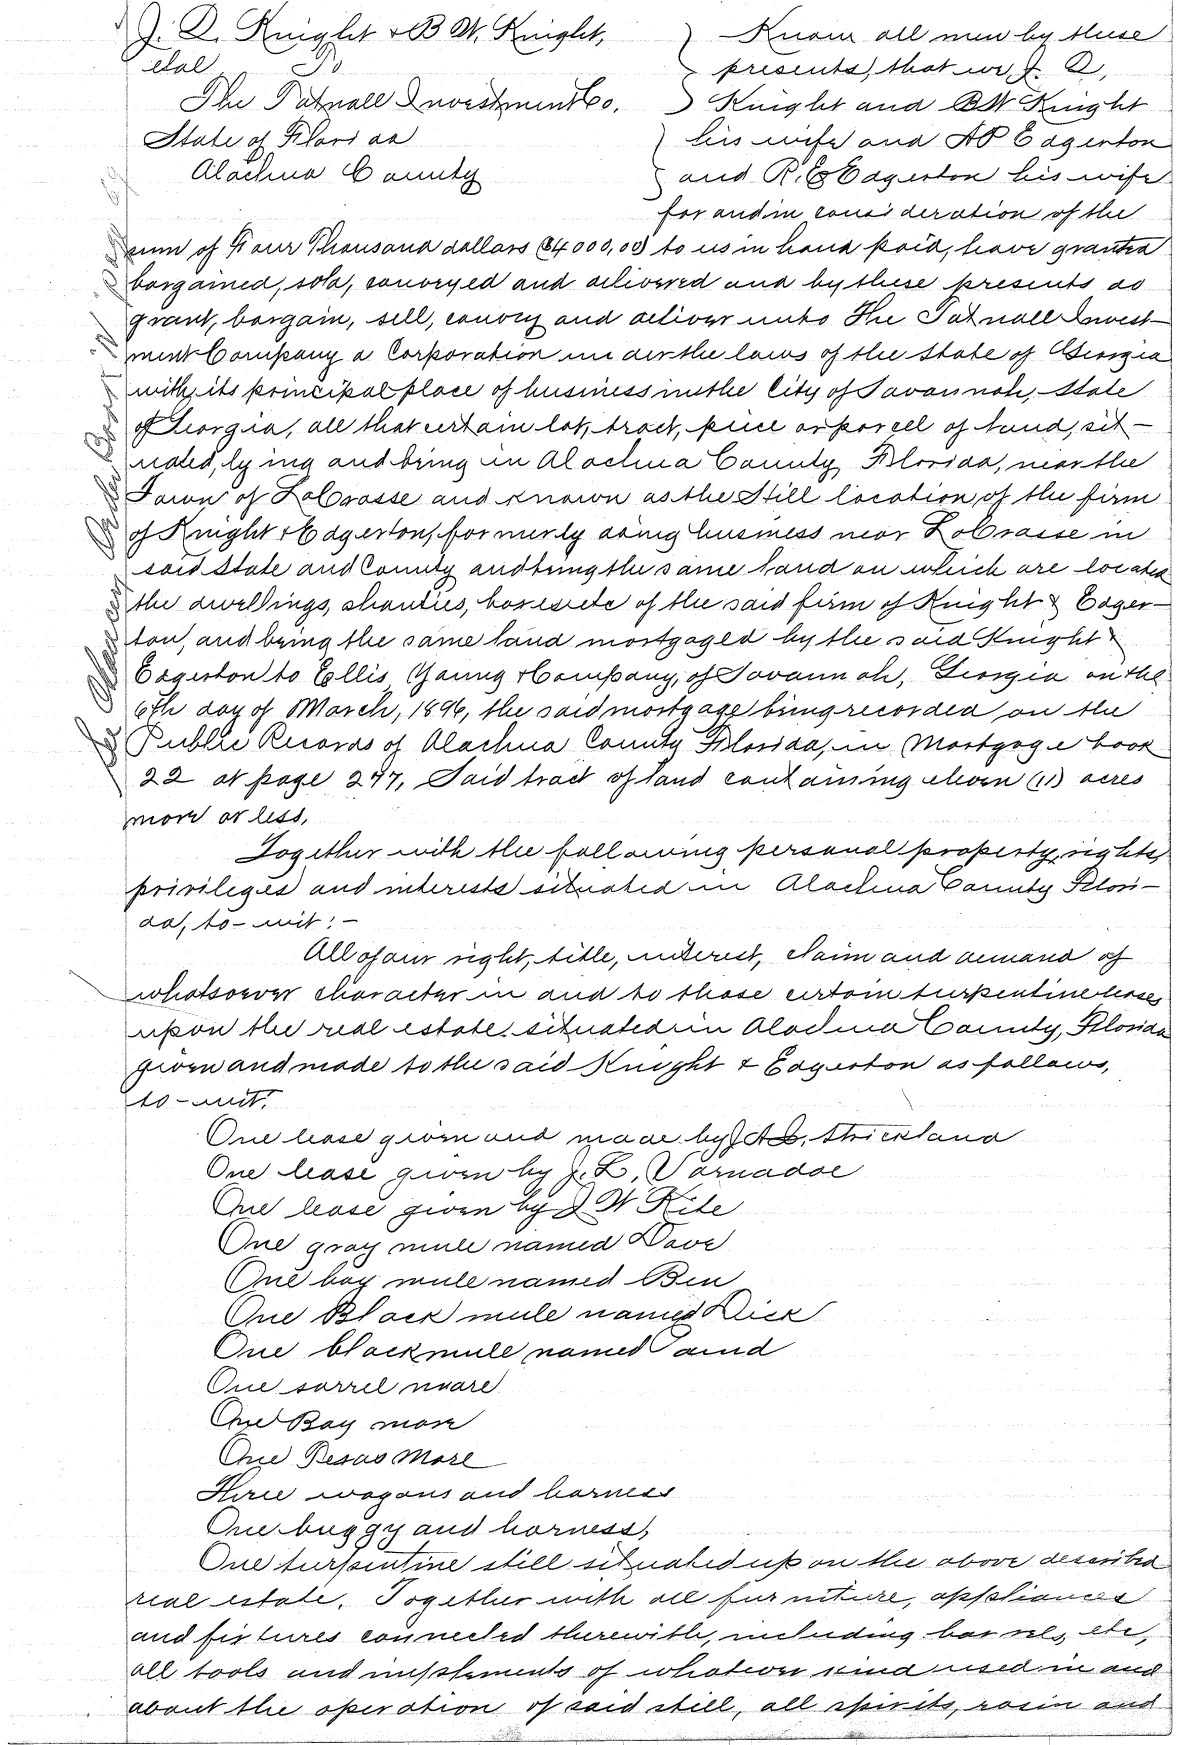 J. Q. Knight & B W. Knight,
etal To
The Tatnall Investment Co.
State of Florida
Alachua County
Know all men by these
presents, that we J. Q.
Knight and B W Knight
his wife and A P Edgerton
and R. E Edgerton his wife
for and in consideration of the
sum of Four Thousand dollars ($4000,00) to us in hand paid, have granted
bargained, sold, conveyed and delivered and by these presents do
grant, bargain, sell, convey and deliver unto The Tatnall Invest-
ment Company a Corporation under the laws of the State of Georgia
with its principal place of business in the City of Savannah, State
of Georgia, all that certain lot, tract, piece or parcell of land, sit-
uated, lying and being in Alachua County Florida, near the
Town of LaCrosse and known as the Still location of the firm
of Knight & Edgerton, formerly doing business near LaCrosse in
said State and County and being the same land on which are located
the dwellings, shanties, boxes etc of the said firm of Knight & Edger-
ton, and being the same land mortgaged by the said Knight &
Edgerton to Ellis Young & Company, of Savannah, Georgia on the
6th day of March, 1896, the said mortgage being recorded on the
Public Records of Alachua County Florida, in Mortgage book
22 at page 247, Said tract of land containing eleven (11) acres
more or less,
Together with the following personal property, rights,
privileges and interests situated in Alachua County Flori-
da, to-wit:-
All of our right, title, interest, claim and demand of
whatsoever character in and to those certain turpentine leases
upon the real estate situated in Alachua County, Florida
given and made to the said Knight & Edgerton as follows,
to-wit:
One lease given and made by Strickland
One lease given by J. L. Varnadoe
One lease given by J W Kite
One gray mule named Dave
One bay mule named Ben
One Black mule named Dick
One black mule named
One sorrel mare
One Bay mare
One Mare
Three wagons and harness
One buggy and harness,
One turpentine still situated upon the above described
real estate. Together with all furniture, appliances
and fixtures connected therewith, including barrels, etc,
all tools and implements of whatever kind used in and
about the operation of said still, all spirits, rosin and